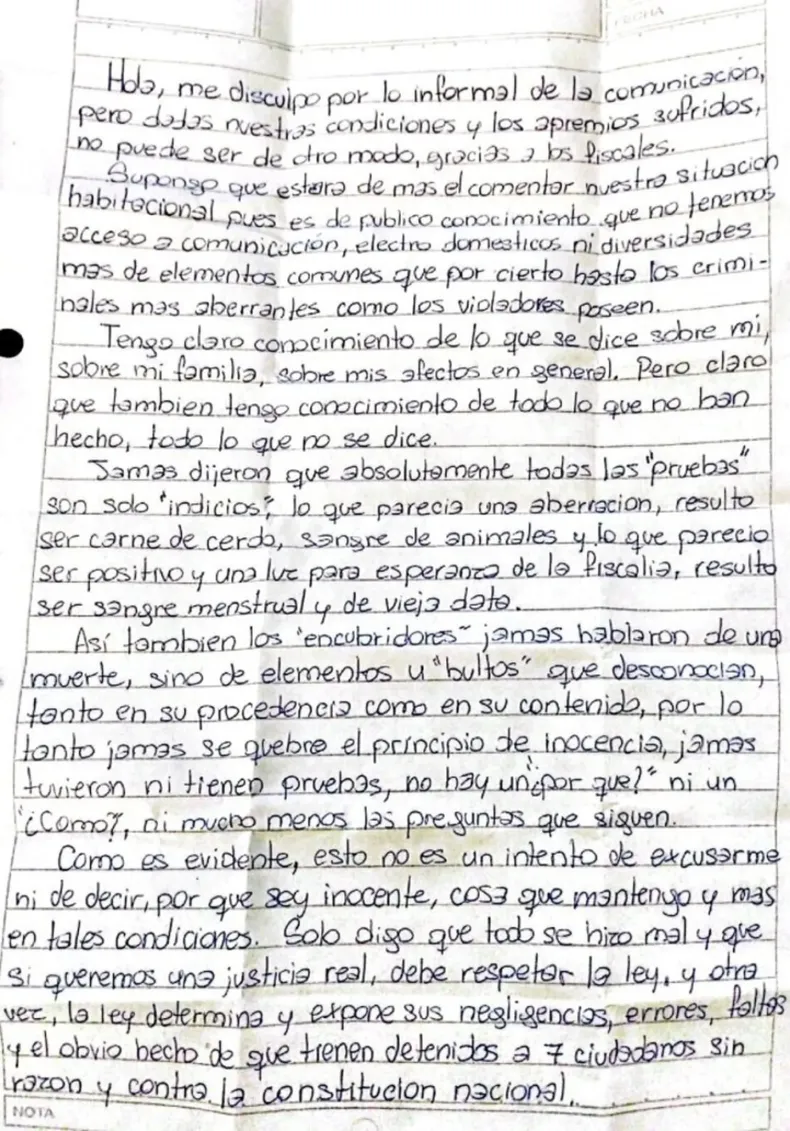 FECHA
Hola, me disculpo por lo informal de la comunicación,
pero dadas nuestras condiciones y los apremios sufridos,
no puede ser de otro modo, gracias a los fiscales.
Supongo que estara de mas el comentar nuestra situacion
habitacional pues es de publico conocimiento que no tenemos
acceso a comunicación, electro domesticos ni diversidades
mas de elementos comunes que por cierto hasta los crimi-
nales mas aberrantes como los violadores poseen.
Tengo claro conocimiento de lo que se dice sobre mi,
sobre mi familia, sobre mis afectos en general. Pero claro
que tambien tengo conocimiento de todo lo que no han
hecho, todo lo que no se dice.
Jamas dijeron que absolutamente todas las "pruebas"
son solo "indicios", lo que parecia una aberracion, resulto
ser carne de cerdo, sangre de animales y lo que parecio
ser positivo y una luz para esperanza de la fiscalia, resulto
ser sangre menstrual y de vieja data.
Así tambien los "encubridores" jamas hablaron de una
muerte, sino de elementos u "bultos" que desconocian,
tanto en su procedencia como en su contenido, por lo
tanto jamas se quebre el principio de inocencia, jamas
tuvieron ni tienen pruebas, no hay un "¿por que?" ni un
"¿Como?, ni mucho menos las preguntas que siguen.
Como es evidente, esto no es un intento de excusarme
ni de decir, por que soy inocente, cosa que mantengo y mas
en tales condiciones. Solo digo que todo se hizo mal y que
si queremos una justicia real, debe respetar la ley, y otra
vez, la ley determina y expone sus negligencias, errores, faltas
y el obvio hecho de que tienen detenidos a 7 ciudadanos sin
razon y contra la constitucion nacional.
NOTA